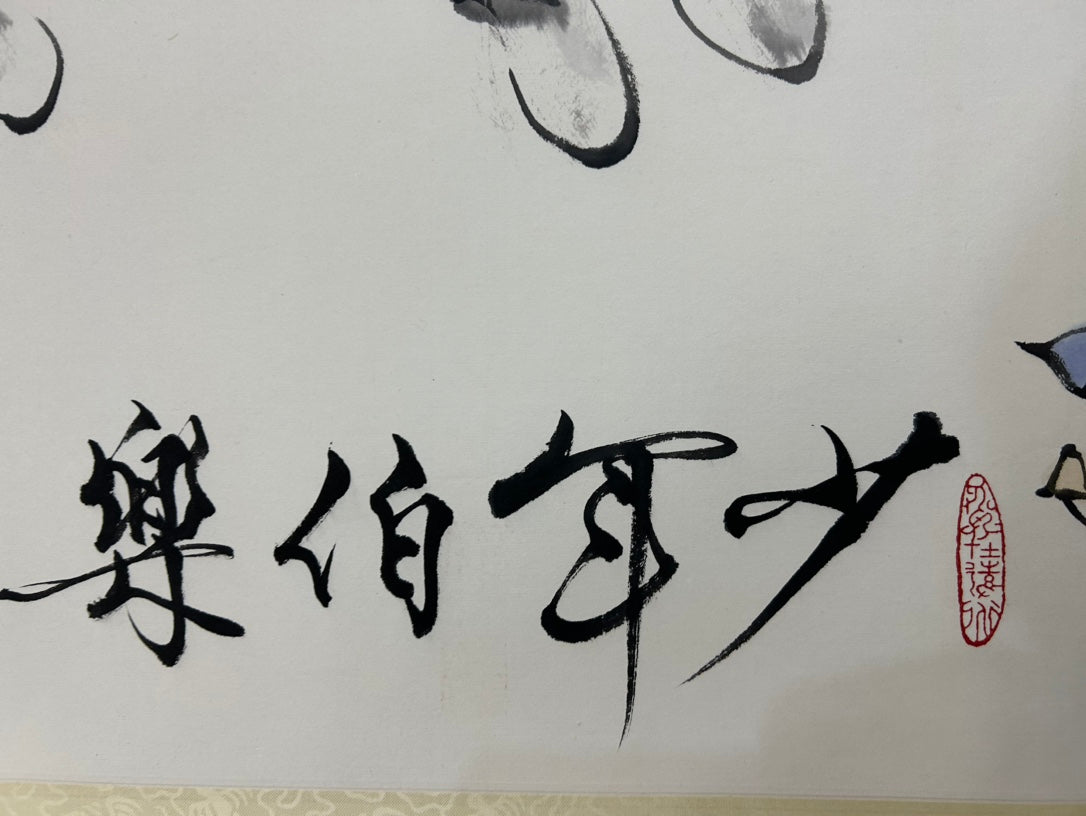 少年伯樂